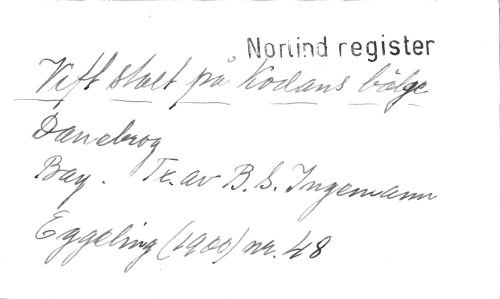 Norlind register
Vift stolt på Kodans bölge
Danebrog
Bay. Tx. av B. S. Ingemann
Eggeling (1900) nr. 48